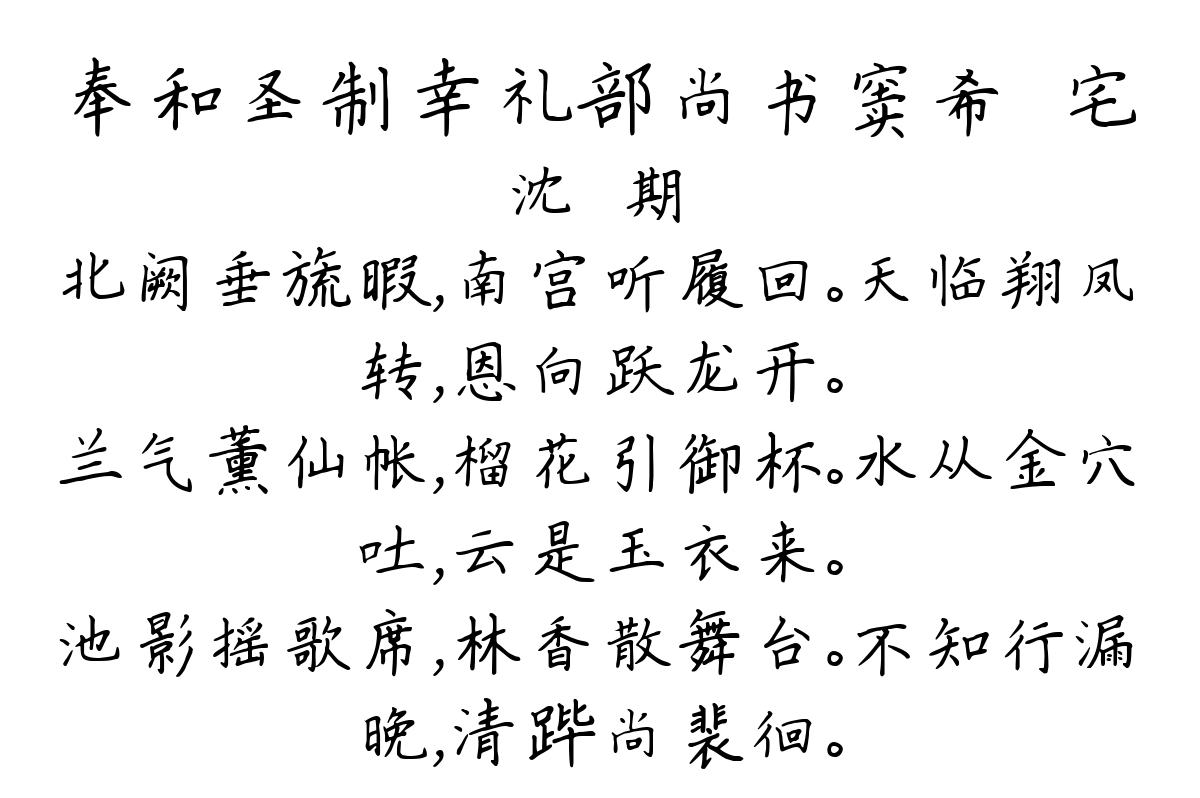 奉和圣制幸礼部尚书窦希 宅
沈 期
北阙垂旒暇,南宫听履回。天临翔凤
转,恩向跃龙开。
兰气薰仙帐,榴花引御杯。水从金穴
吐,云是玉衣来。
池影摇歌席,林香散舞台。不知行漏
晚,清跸尚裴徊。